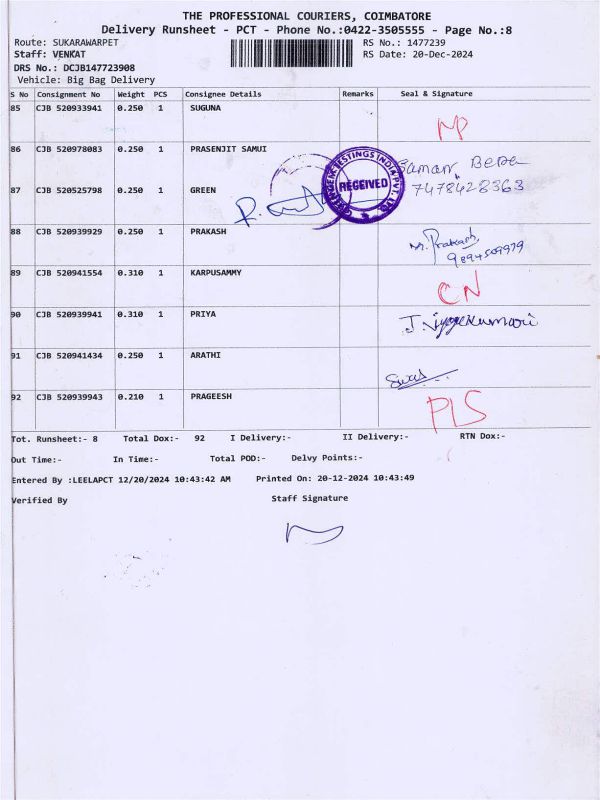 THE PROFESSIONAL COURIERS, COIMBATORE
Delivery Runsheet - PCT - Phone No.:0422-3505555 - Page No.:8
Route: SUKARAWARPET RS No.: 1477239
Staff: VENKAT RS Date: 20-Dec-2024
DRS No.: DCJB147723908
Vehicle: Big Bag Delivery
S No Consignment No Weight PCS Consignee Details Remarks Seal & Signature
85 CJB 520933941 0.250 1 SUGUNA
NP
86 CJB 520978083 0.250 1 PRASENJIT SAMUI
Saman Bera
7478428363
87 CJB 520525798 0.250 1 GREEN
TESTINGS INDIA PVT. LTD.
RECEIVED
88 CJB 520939929 0.250 1 PRAKASH
M. Prakash
9894509979
89 CJB 520941554 0.310 1 KARPUSAMMY
CN
90 CJB 520939941 0.310 1 PRIYA
91 CJB 520941434 0.250 1 ARATHI
92 CJB 520939943 0.210 1 PRAGEESH
PLS
Tot. Runsheet:- 8 Total Dox:- 92 I Delivery:- II Delivery:- RTN Dox:-
Out Time:- In Time:- Total POD:- Delvy Points:-
Entered By :LEELAPCT 12/20/2024 10:43:42 AM Printed On: 20-12-2024 10:43:49
Verified By Staff Signature